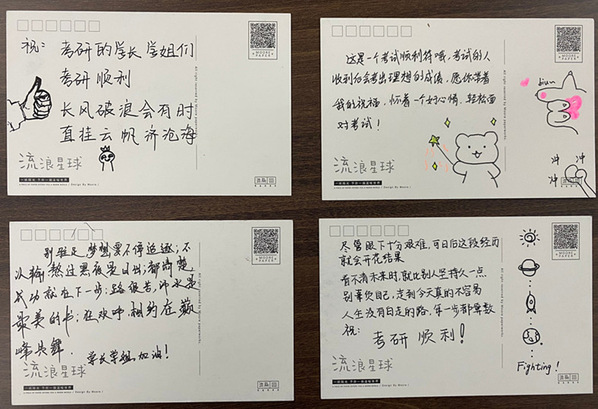 祝：考研的学长学姐们
考研顺利
长风破浪会有时
直挂云帆济沧海
流浪星球
这是一个考试顺利符哦，考试的人
收到后会考出理想的成绩，愿你带着
我的祝福，怀着一个好心情，轻松面
对考试！
biu~
冲
冲
冲
流浪星球
别驻足，梦想要不停追逐；不
认输，熬过黑夜是日出；都清楚
成功就在下一步；路很苦，汗水是
最美的书；在欢呼，相约在巅
峰共舞。
学长学姐加油！
流浪星球
尽管眼下十分艰难，可日后这段经历
就会开花结果
看不清未来时，就比别人坚持久一点
别辜负自己，走到今天真的不容易
人生没有白走的路，每一步都算数
祝：
考研顺利！
Fighting!
流浪星球